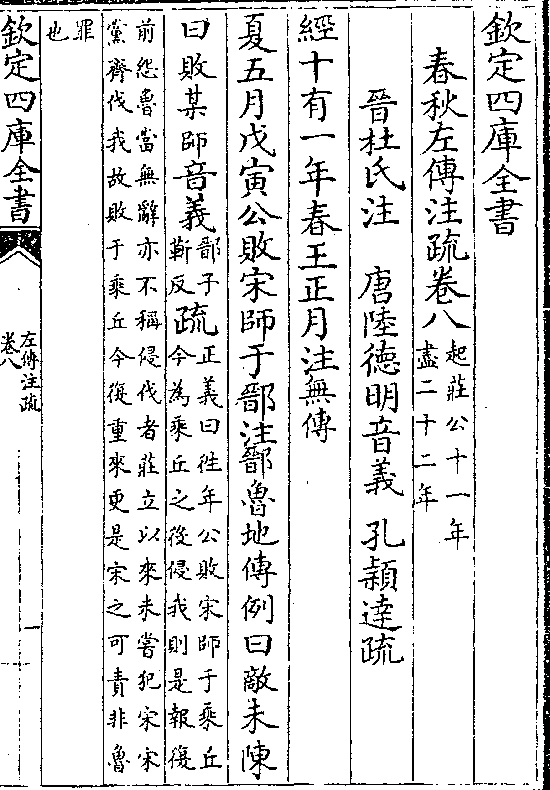 欽定四庫全書
春秋左傳注疏卷八起莊公十一年
盡二十二年
晉杜氏注　唐陸德明音義　孔穎達疏
經十有一年春王正月注無傳
夏五月戊寅公敗宋師于鄑注鄑魯地傳例曰敵未陳
曰敗某師音義鄑子
靳反疏正義曰往年公敗宋師于乘丘
今為乘丘之後侵我則是報復
前怨魯當無辭亦不稱侵伐者莊立以來未嘗犯宋宋
黨齊伐我故敗于乘丘今復重來更是宋之可責非魯
罪
也
欽定四庫全書
左傳注疏
卷八
一